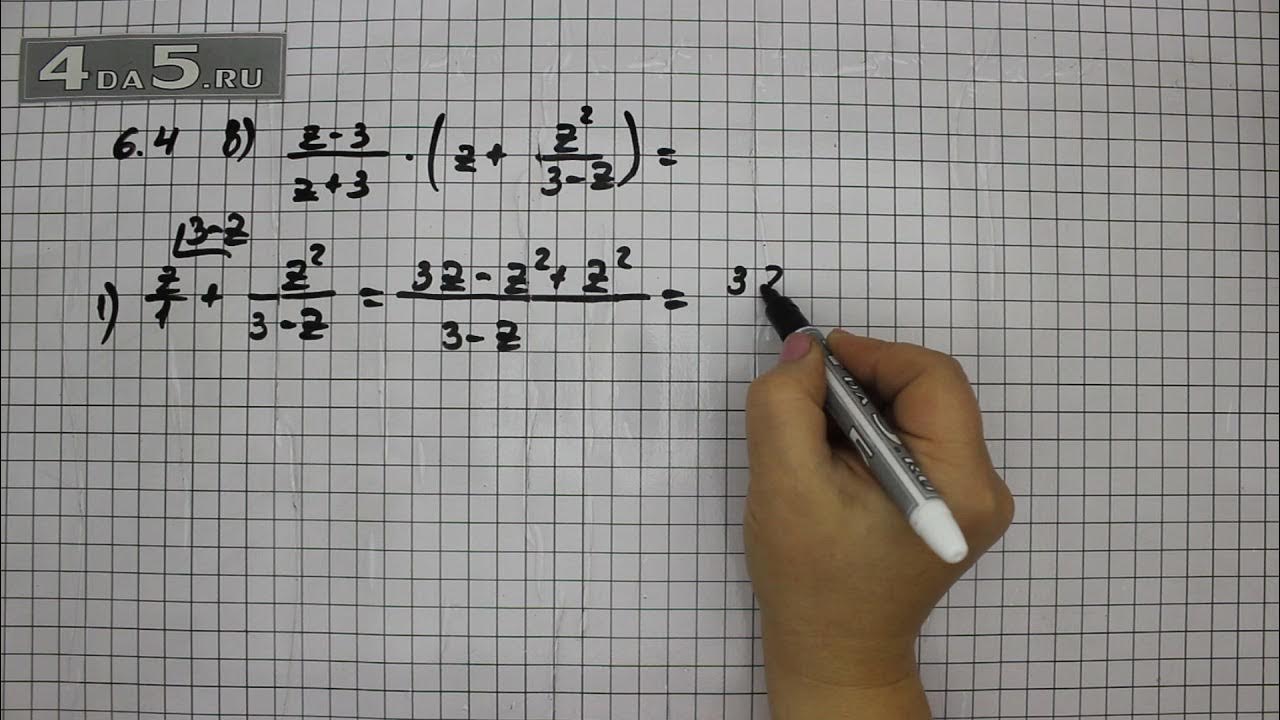 4DA5.RU
6.4 в) (z-3)/(z+3) · (z + z²/(3-z)) =
3-z
1) z/1 + z²/(3-z) = (3z-z²+z²)/(3-z) = 3z